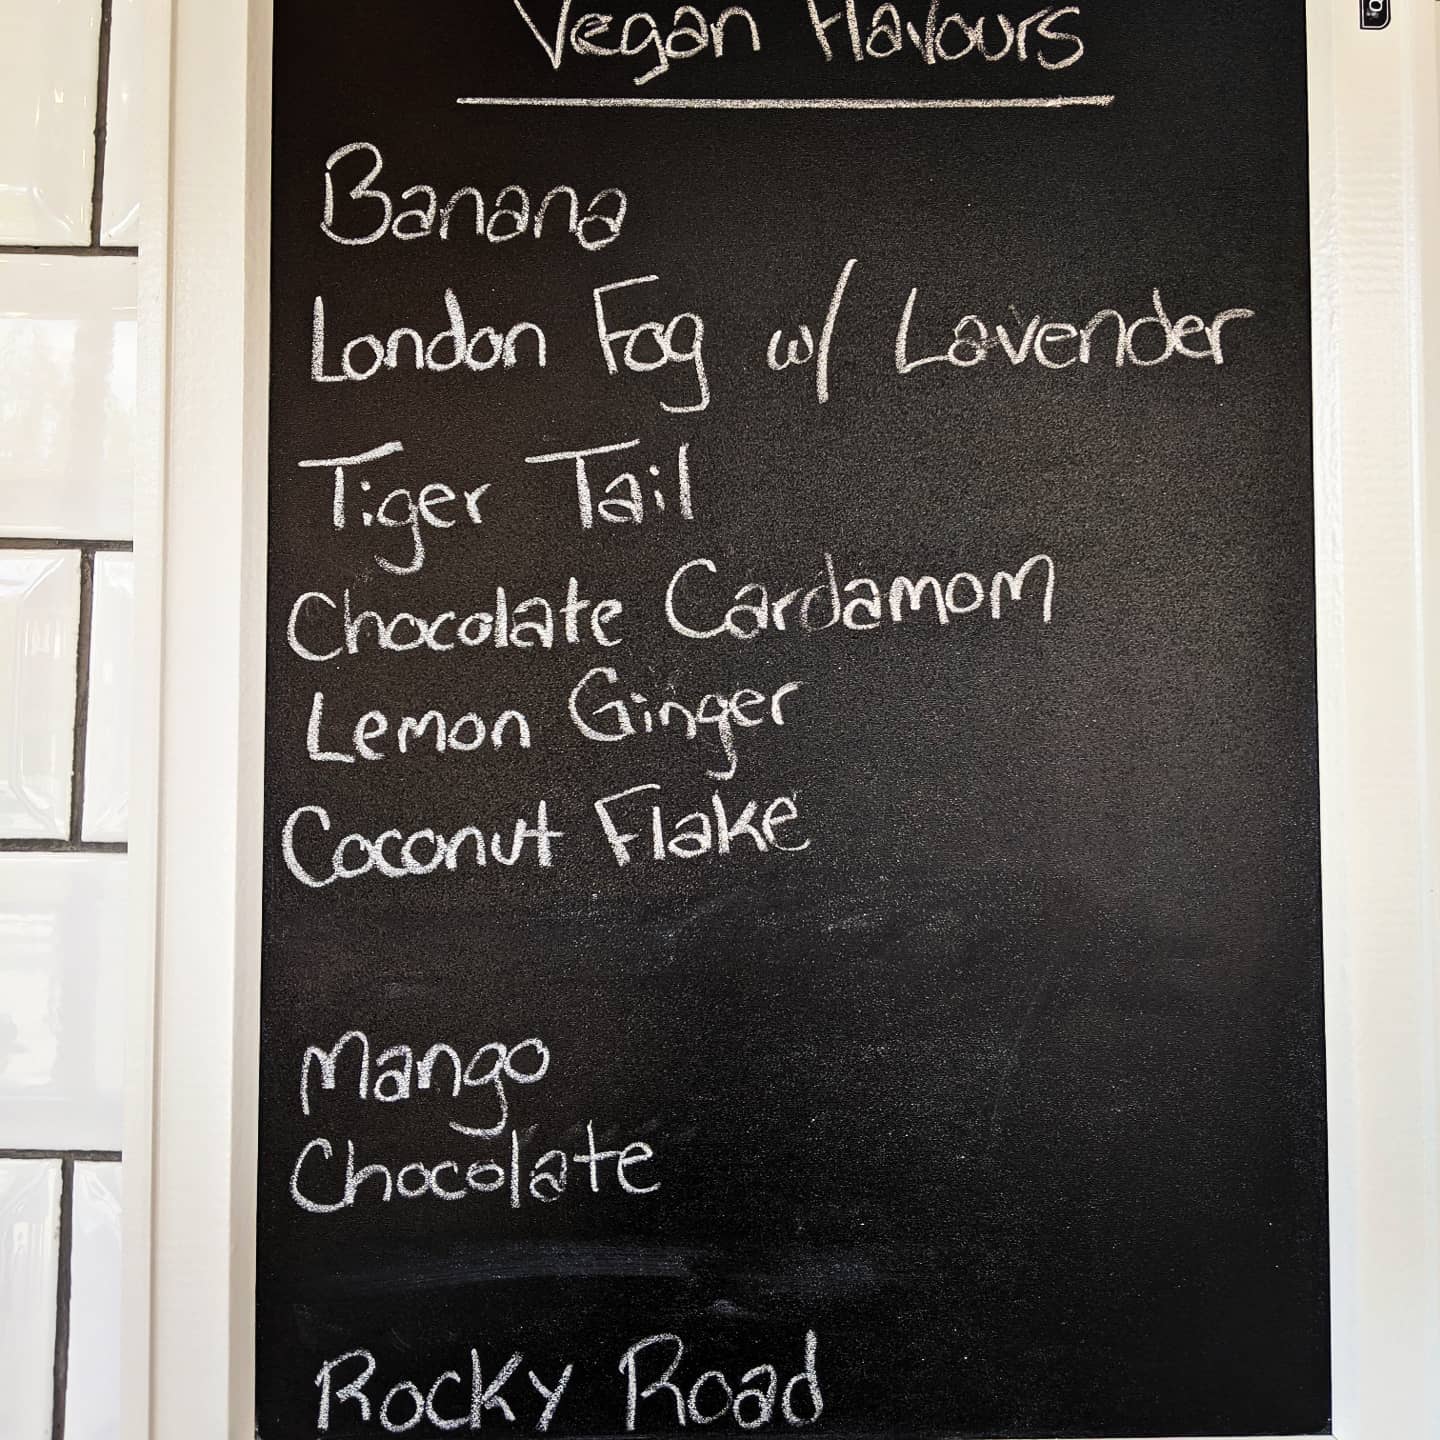 Vegan Flavours
Banana
London Fog w/ Lavender
Tiger Tail
Chocolate Cardamom
Lemon Ginger
Coconut Flake
Mango
Chocolate
Rocky Road